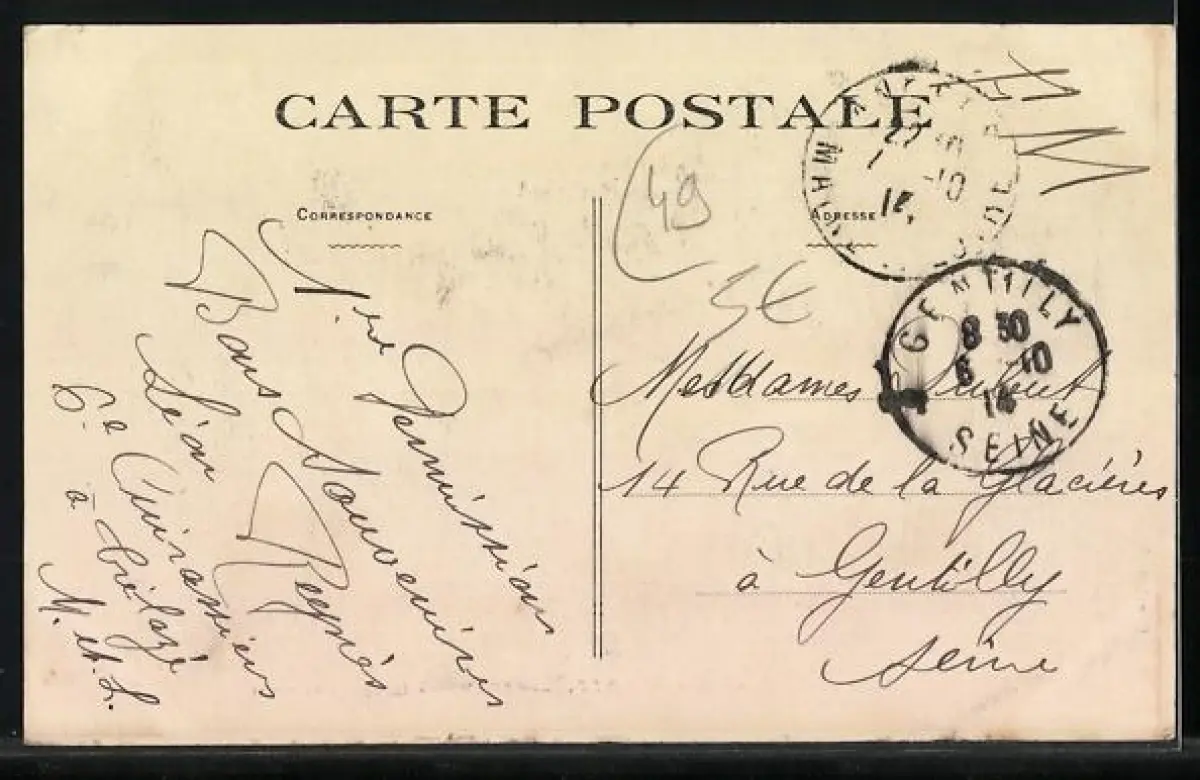 CARTE POSTALE
CORRESPONDANCE
ADRESSE
49
F M
1re Permission
Bons Souvenirs
Léon Peynès
6e Cuirassiers
à Trélazé
M. et L.
Mesdames
14 Rue de la Glacières
à Gentilly
Seine
GENTILLY
8 30
6 -10
14
SEINE
-10
14